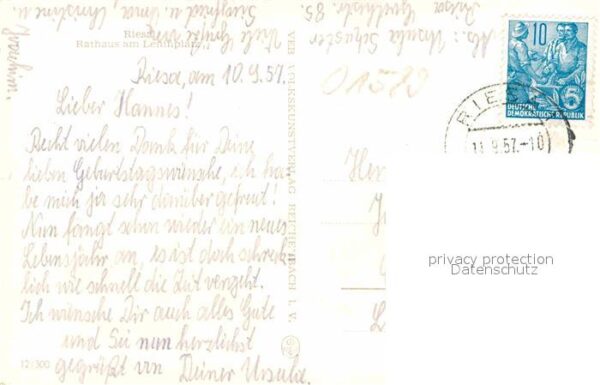 Riesa
Rathaus am Leninplatz
Riesa, am 10.9.57.
Lieber Hannes!
Recht vielen Dank für Deine
lieben Geburtstagswünsche, ich ha-
be mich ja sehr darüber gefreut!
Nun fängt schon wieder ein neues
Lebensjahr an, es ist doch schreck-
lich wie schnell die Zeit vergeht.
Ich wünsche Dir auch alles Gute
und Sei nun herzlichst
gegrüßt von Deiner Ursula.
12/300
Abs.: Ursula Schuster
Riesa
85.
Viele Grüße
Siegfried u. Oma, Christine u.
Joachim.
VEB VOLKSKUNSTVERLAG REICHENBACH I. V.
10
5
DEUTSCHE
DEMOKRATISCHE REPUBLIK
RIESA
11.9.57.-10
Her
L
privacy protection
Datenschutz